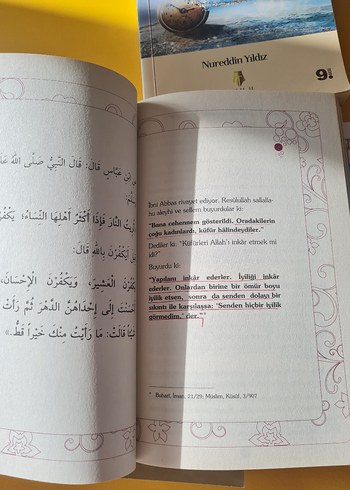 Nureddin Yıldız
9
ابن عبّاسٍ قالَ: قالَ النَّبِيُّ صَلَّى اللهُ عَلَ
أُرِيتُ النَّارَ فَإِذَا أَكْثَرُ أَهْلِهَا النِّسَاءُ، يَكْفُرْ
أَيَكْفُرْنَ بِاللهِ قَالَ:
يَكْفُرْنَ الْعَشِيرَ، وَيَكْفُرْنَ الْإِحْسَانَ،
أَحْسَنْتَ إِلَى إِحْدَاهُنَّ الدَّهْرَ ثُمَّ رَأَتْ
شَيْئاً قَالَتْ: مَا رَأَيْتُ مِنْكَ خَيْراً قَطُّ.»
İbni Abbas rivayet ediyor. Resûlullah sallalla-
hu aleyhi ve sellem buyurdular ki:
"Bana cehennem gösterildi. Oradakilerin
çoğu kadınlardı, küfür hâlindeydiler."
Dediler ki: "Küfürleri Allah'ı inkâr etmek mi
idi?"
Buyurdu ki:
"Yapılanı inkâr ederler. İyiliği inkâr
ederler. Onlardan birine bir ömür boyu
iyilik etsen, sonra da senden dolayı bir
sıkıntı ile karşılaşsa: 'Senden hiçbir iyilik
görmedim.' der."
Buhari, İman, 21/29; Müslim, Küsûf, 3/907